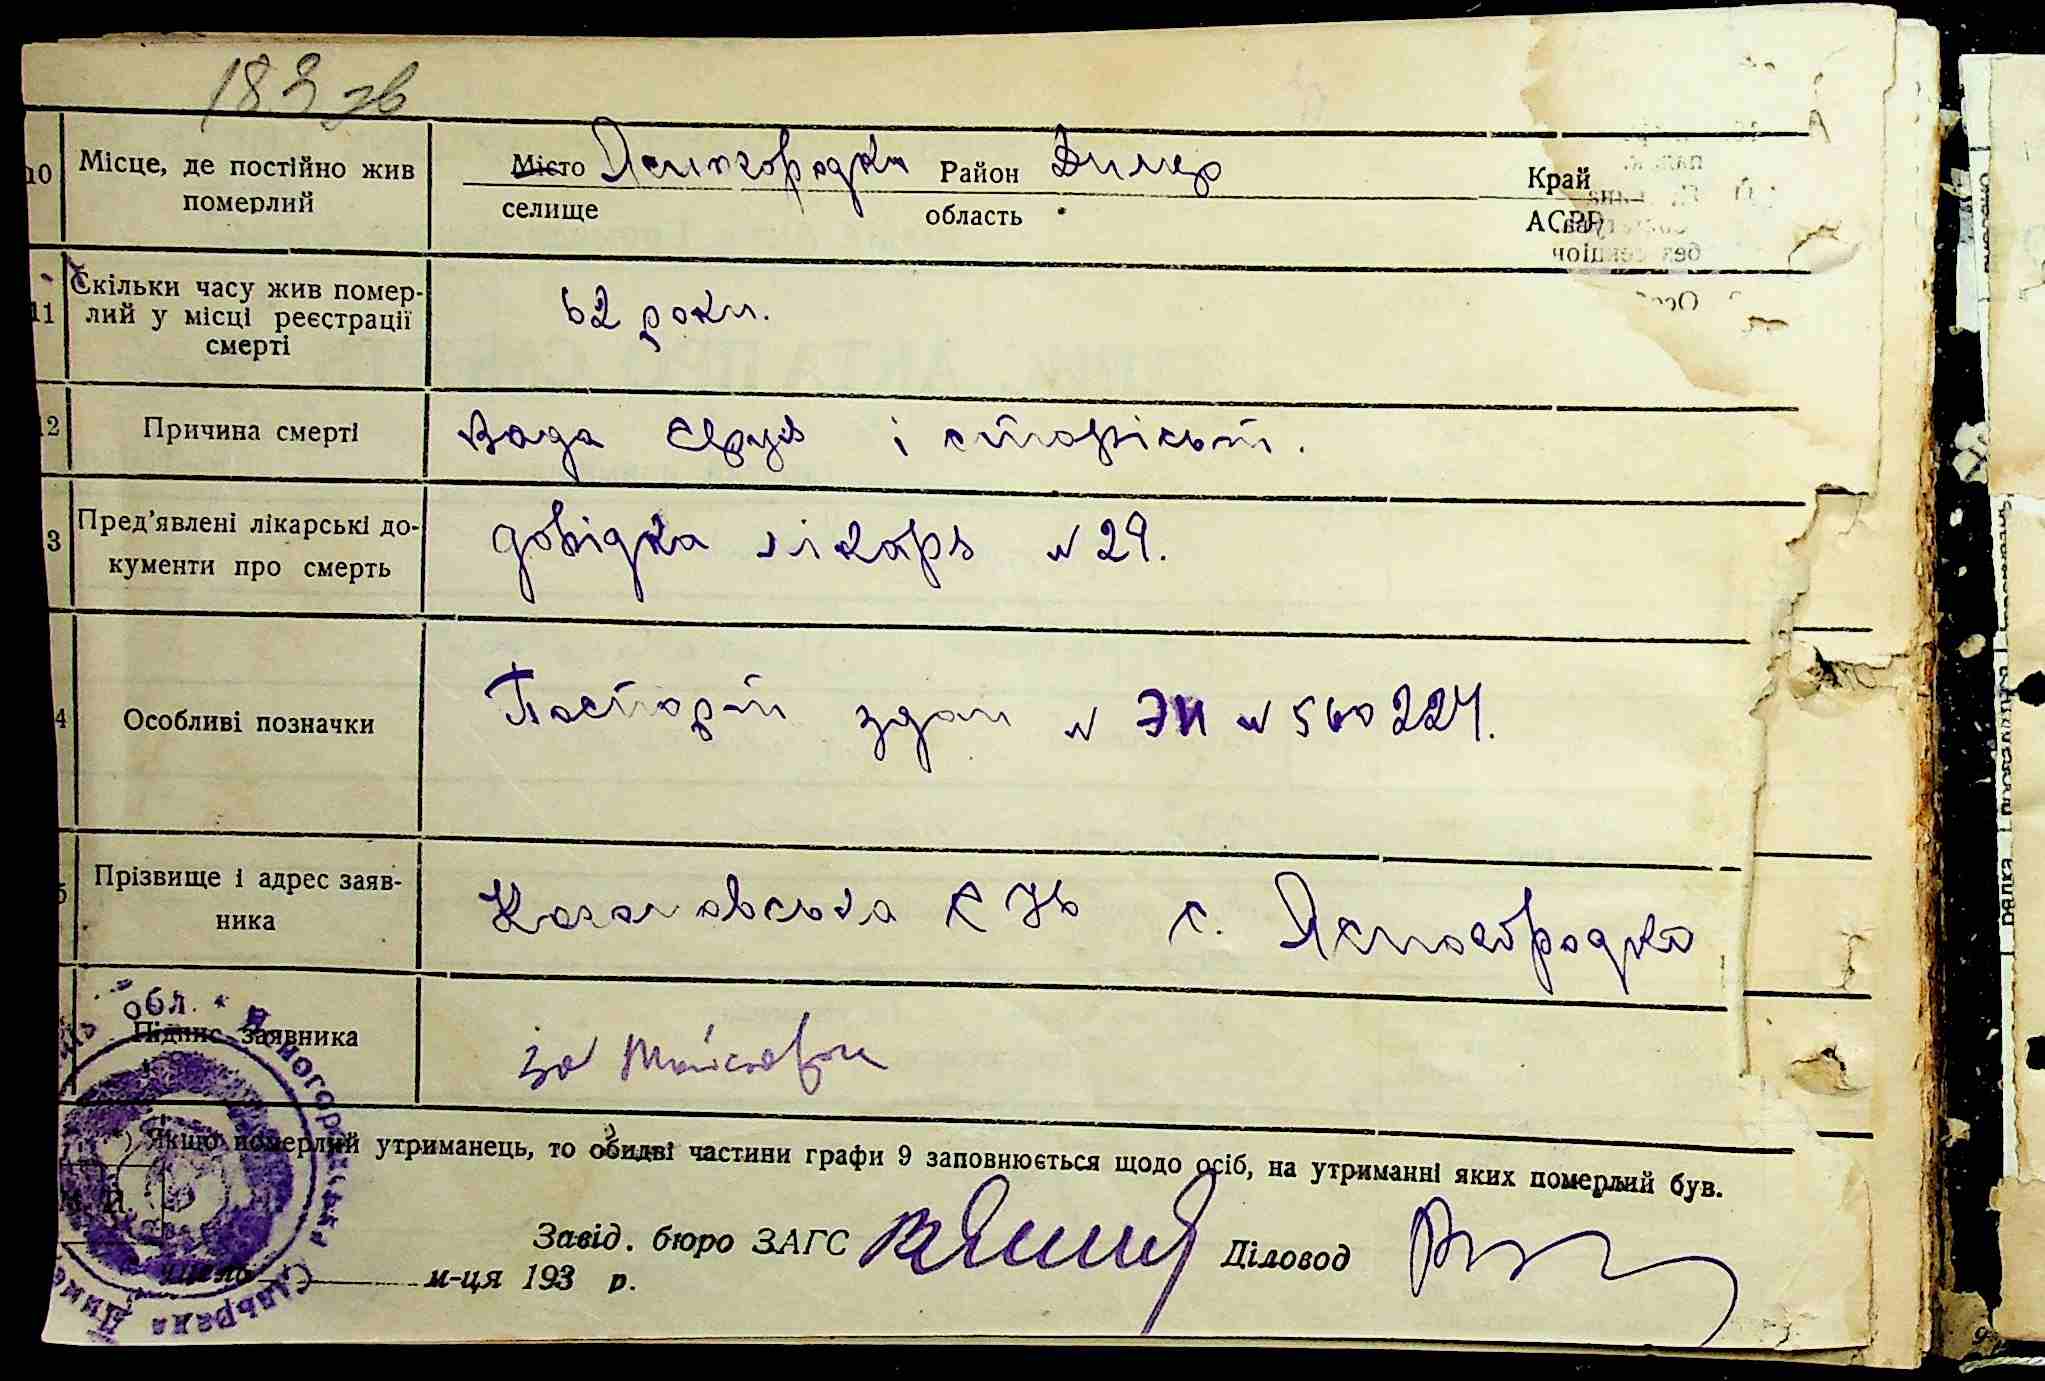 183 зв
10 Місце, де постійно жив померлий
Місто Ясногородка Район Димер Край
селище область АСРР
11 Скільки часу жив помер-
лий у місці реєстрації
смерті
62 роки.
12 Причина смерті
Вада серця і старість.
13 Пред'явлені лікарські до-
кументи про смерть
довідка лікаря № 29.
14 Особливі позначки
Паспорт здан № ЭИ № 560224.
15 Прізвище і адрес заяв-
ника
с. Ясногородка
Підпис заявника
за
*) Якщо померлий утриманець, то обидві частини графи 9 заповнюється щодо осіб, на утриманні яких померлий був.
М. П.
Завід. бюро ЗАГС Діловод
число м-ця 193 р.
обл. * Ясногородська Сільрада Диме